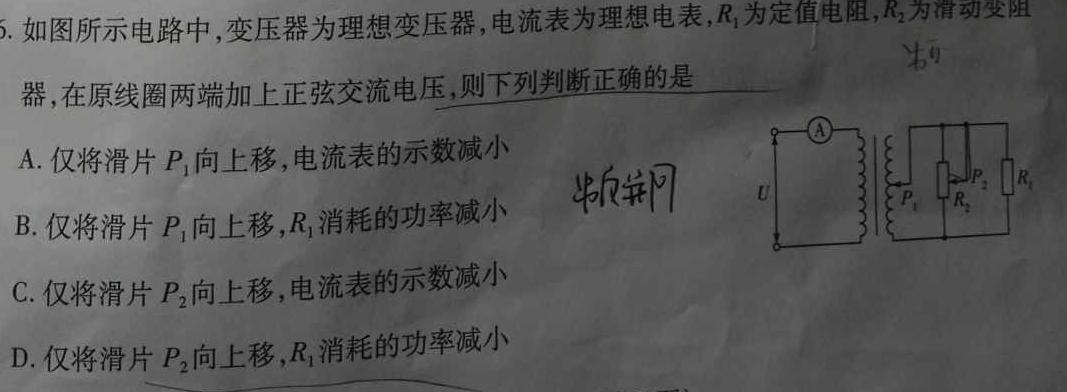 6. 如图所示电路中,变压器为理想变压器,电流表为理想电表,R₁为定值电阻,R₂为滑动变阻
器,在原线圈两端加上正弦交流电压,则下列判断正确的是
A. 仅将滑片 P₁向上移,电流表的示数减小
B. 仅将滑片 P₁向上移,R₁消耗的功率减小
C. 仅将滑片 P₂向上移,电流表的示数减小
D. 仅将滑片 P₂向上移,R₁消耗的功率减小
A
U
P₁
R₂
P₂
R₁